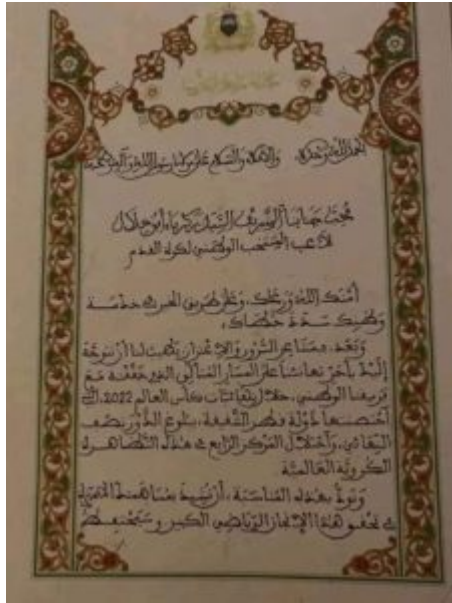 الحمد لله وحده، والصلاة والسلام على مولانا رسول الله وآله وصحبه
محب جنابنا الشريف السيد زكرياء أبو خلال
لاعب المنتخب الوطني لكرة القدم
أمنك الله ورعاك، وعلى طريق الخير في خدمة
وطنك سدد خطاك،
وبعد، فمن بواعث السرور والاعتزاز لجنابنا أن نتوجه
إليك بأحر تهانئنا على المسار المتألق الذي حققه مع
فريقنا الوطني، خلال نهائيات كأس العالم 2022، التي
احتضنتها دولة قطر الشقيقة، ببلوغ الدور نصف
النهائي، واحتلال المركز الرابع في هذه التظاهرة
الكروية العالمية
ونود بهذه المناسبة، أن نشيد بمساهمتك
في تحقيق هذا الإنجاز الرياضي الكبير